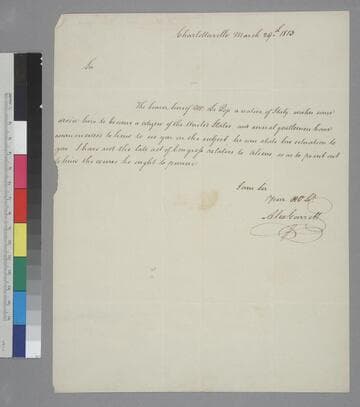 Charlottesville March 29th 1813
Sir
The bearer hereof Mr. De a native of Italy wishes some
advice how to become a citizen of the United States and several gentlemen have
to him to see you on the subject he can state his situation to
you I have not the late act of Congress relative to Aliens so as to point out
to him the course he ought to pursue
I am Sir
Your
Alex Garrett